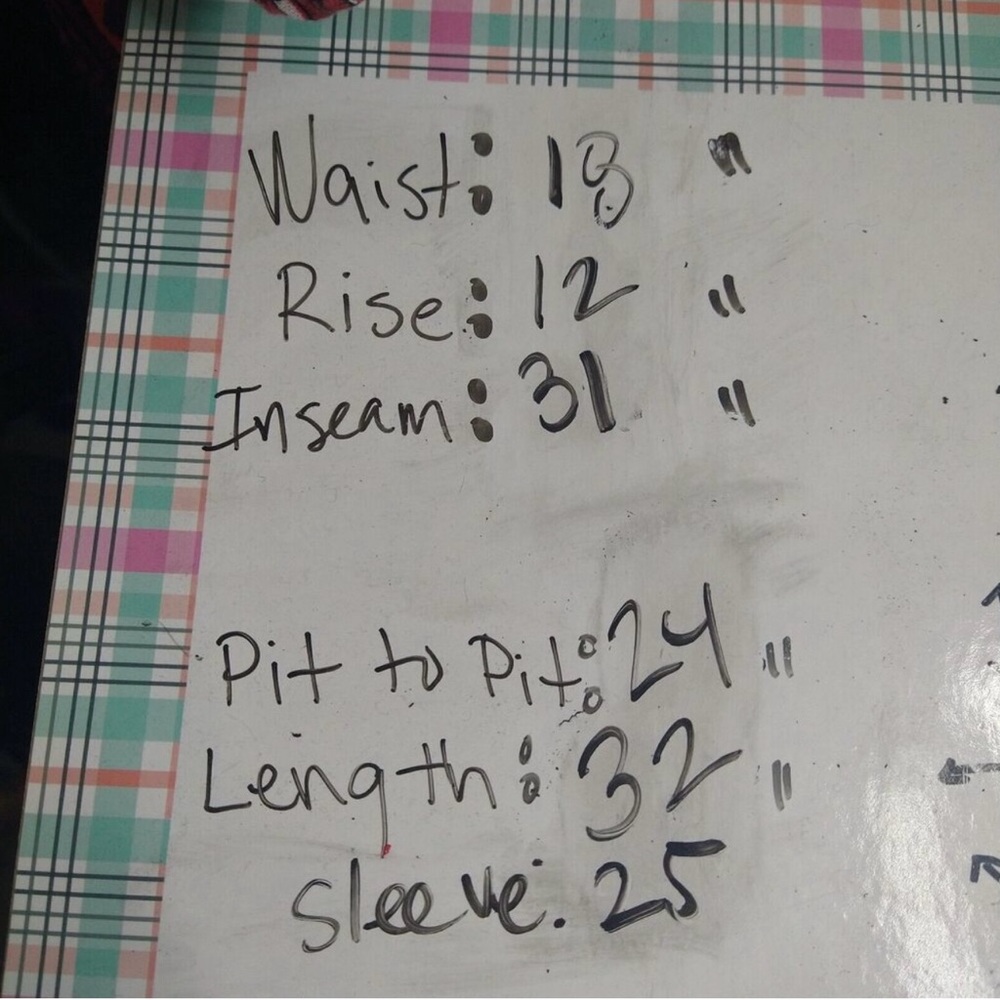 Waist: 18 "
Rise: 12 "
Inseam: 31 "
Pit to Pit: 24 "
Length: 32 "
Sleeve: 25